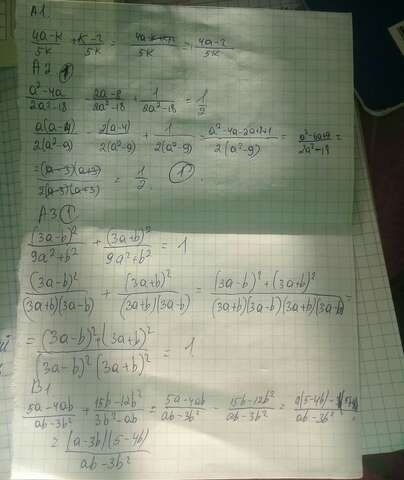 A1.
(4a-k)/5k + (k-2)/5k = (4a-k+k-2)/5k = (4a-2)/5k
A2 ①
(a²-4a)/(2a²-18) - (2a-8)/(2a²-18) + 1/(2a²-18) = 1/2
a(a-4)/2(a²-9) - 2(a-4)/2(a²-9) + 1/2(a²-9) = (a²-4a-2a+8+1)/2(a²-9) = (a²-6a+9)/(2a²-18) =
= (a-3)(a+3)/2(a-3)(a+3) = 1/2 ①.
A3 ①
(3a-b)²/(9a²+b²) + (3a+b)²/(9a²+b²) = 1
(3a-b)²/(3a+b)(3a-b) + (3a+b)²/(3a+b)(3a-b) = ((3a-b)²+(3a+b)²)/(3a+b)(3a-b)(3a+b)(3a-b) =
= ((3a-b)²+(3a+b)²)/((3a-b)²(3a+b)²) = 1
B1
(5a-4ab)/(ab-3b²) + (15b-12b²)/(3b²-ab) = (5a-4ab)/(ab-3b²) - (15b-12b²)/(ab-3b²) =
= (a-3b)(5-4b)/(ab-3b²)